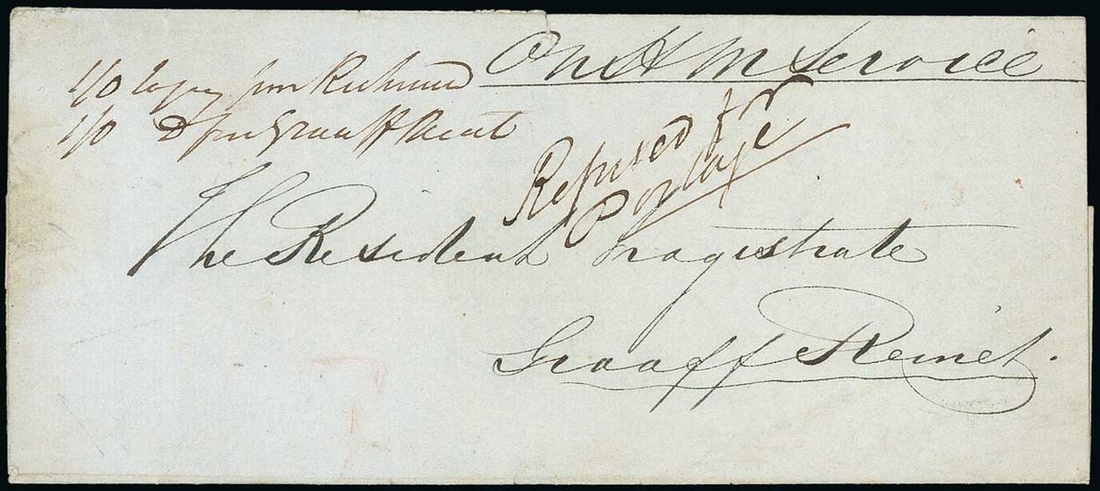 On H M Service
1/0 Richmond
1/0 Do from Graaff Reinet
Refused for
Postage
The Resident Magistrate
Graaff Reinet.